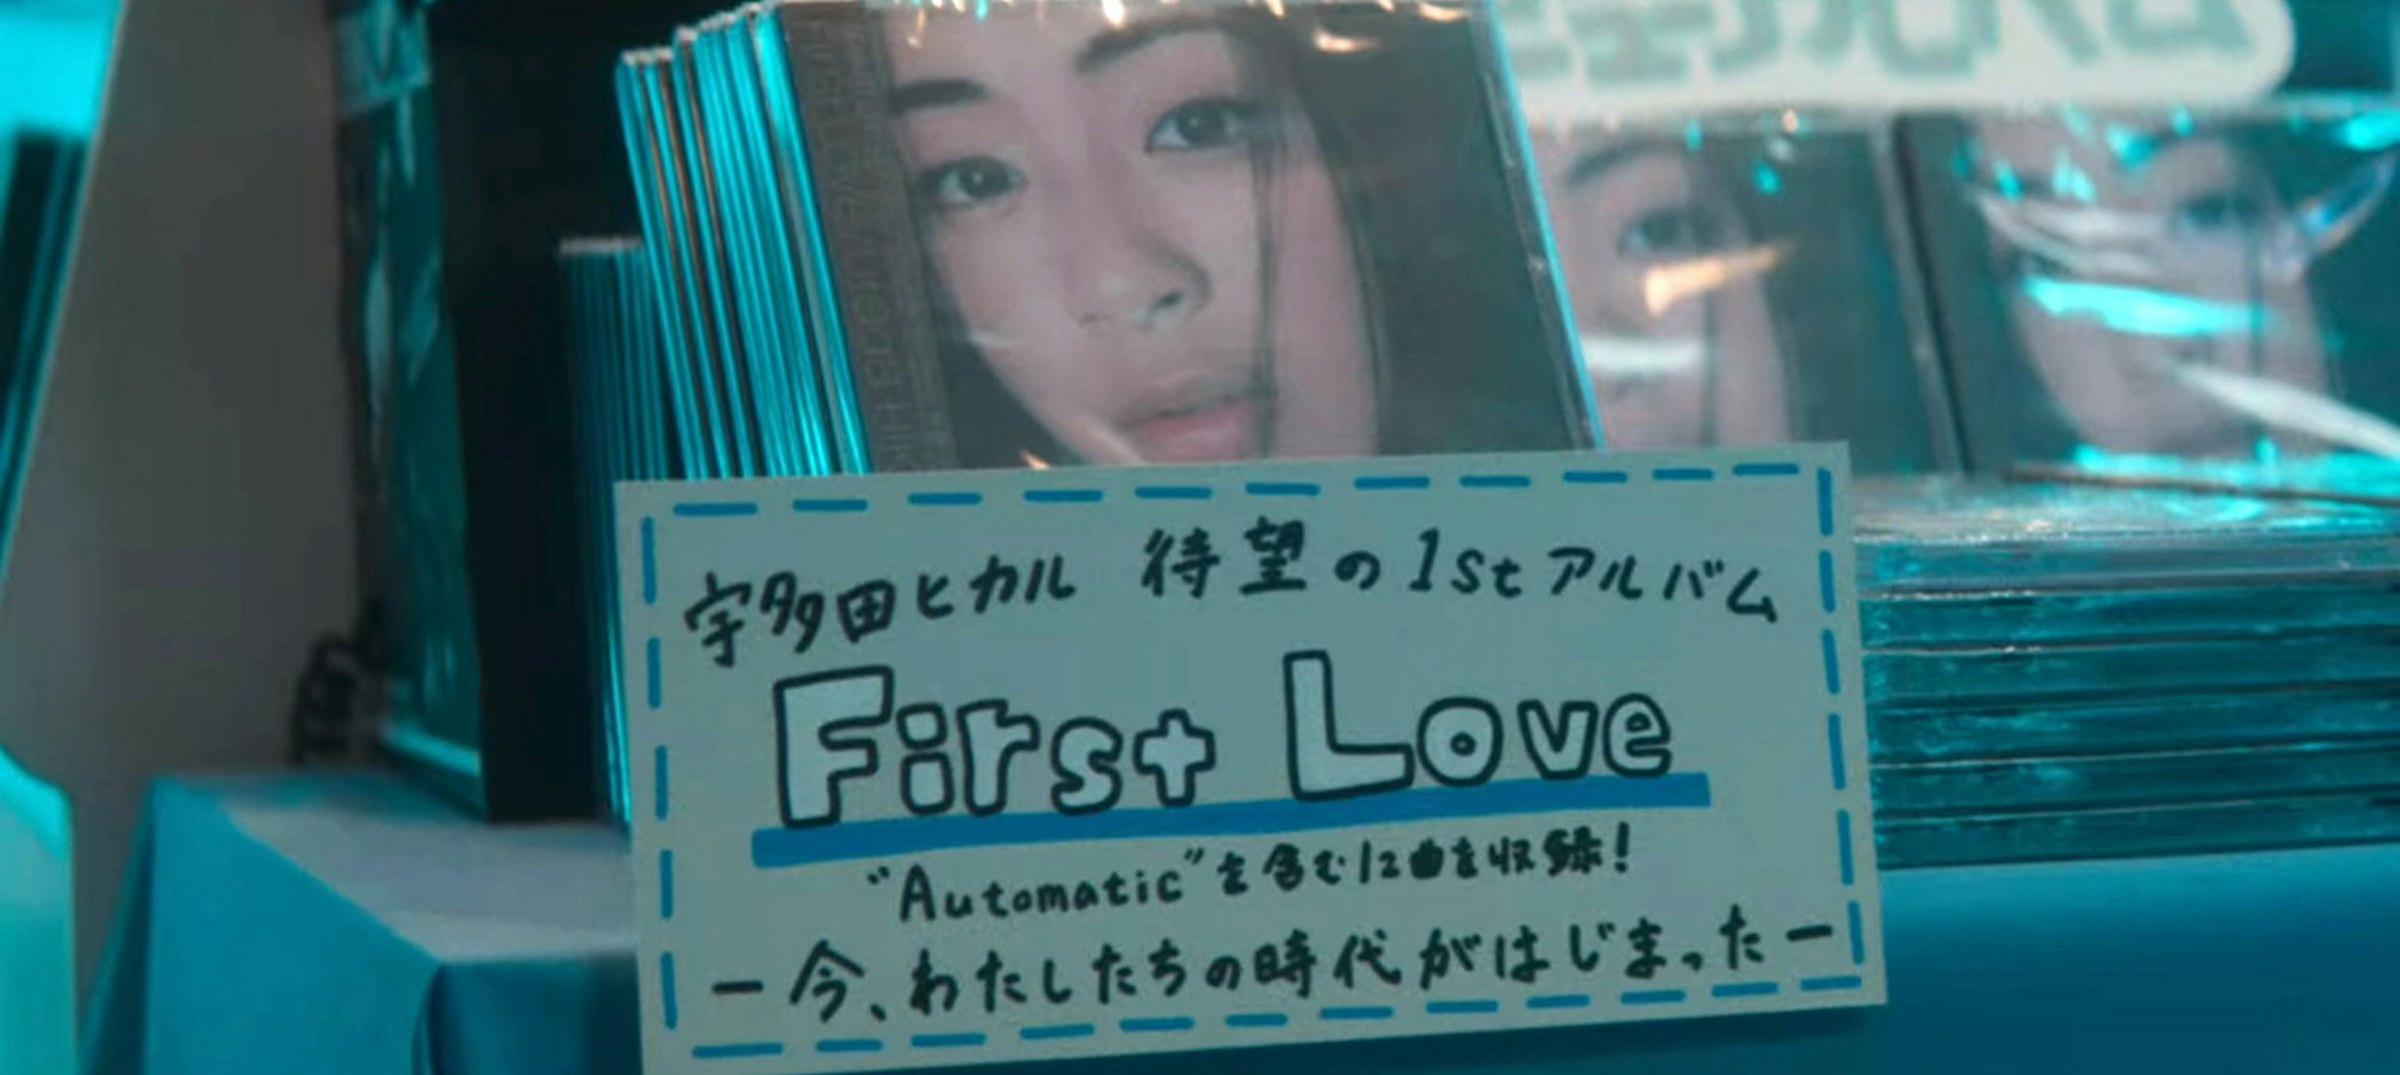 HIKARU UTADA FIRST LOVE
宇多田ヒカル 待望の1stアルバム
First Love
"Automatic"を含む12曲を収録!
ー今、わたしたちの時代がはじまったー